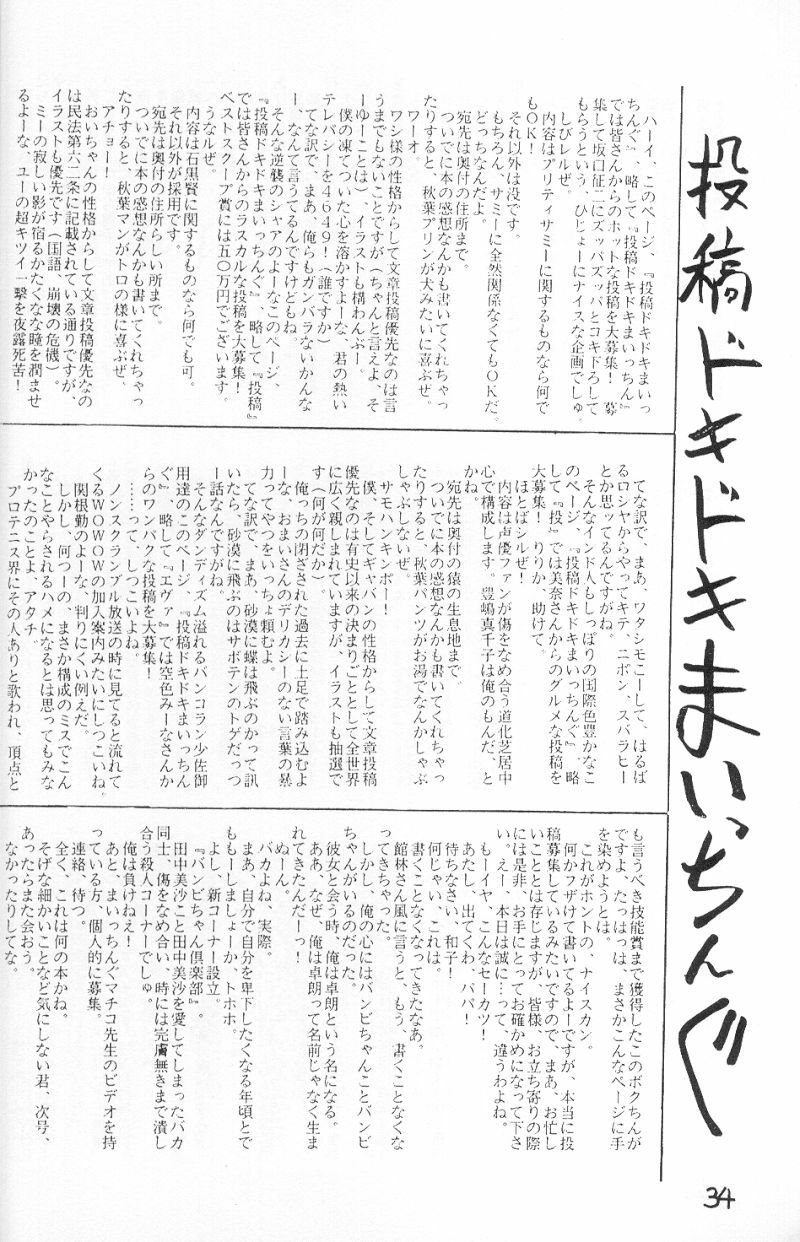 投稿ドキドキまいっちんぐ
ハーイ、このページ、『投稿ドキドキまいっ
ちんぐ』、略して『投稿ドキドキまいっちん』
では皆さんからのホットな投稿を大募集！　募
集して坂口征二にズッパズッパとコキ下ろして
もらうという、ひじょーにナイスな企画でしゅ。
しびレルぜ。
内容はプリティサミーに関するものなら何で
もＯＫ！
それ以外は没です。
もちろん、サミーに全然関係なくてもＯＫだ。
どっちなんだよ。
宛先は奥付の住所まで。
ついでに本の感想なんかも書いてくれちゃっ
たりすると、秋葉プリンが犬みたいに喜ぶぜ。
ワーオ。
ワシ様の性格からして文章投稿優先なのは言
うまでもないことですが（ちゃんと言えよ、そ
ーゆーことは）、イラストも構わんぶー。
僕の凍てついた心を溶かすよーな、君の熱い
テレパシーを４６４９！（誰ですか）
てな訳で、まあ、俺らもガンバラないかんな
ー、なんて言うてるんですけどもね。
そんな逆襲のシャアのよーなこのページ、
『投稿ドキドキまいっちんぐ』、略して『投稿』
では皆さんからのラスカルな投稿を大募集！
ベストスクープ賞には五〇万円でございます。
うなるぜ。
内容は石黒賢に関するものなら何でも可。
それ以外が採用です。
宛先は奥付の住所らしい所まで。
ついでに本の感想なんかも書いてくれちゃっ
たりすると、秋葉マンがトロの様に喜ぶぜ、
アチョー！
おいちゃんの性格からして文章投稿優先なの
は民法第六二条に記載されている通りですが、
イラストも優先です（国語、崩壊の危機）。
ミーの寂しい影が宿るかたくなな瞳を潤ませ
るよーな、ユーの超キツイ一撃を夜露死苦！
てな訳で、まあ、ワタシモコーして、はるば
るロシヤからやってキテ、ニポン、スバラヒー
とか思ってるんですがね。
そんなインド人もしっぽりの国際色豊かなこ
のページ、『投稿ドキドキまいっちんぐ』、略
して『投』では美奈さんからのグルメな投稿を
大募集！　りりか、助けて。
ほとばシルぜ！
内容は声優ファンが傷をなめ合う道化芝居中
心で構成します。豊嶋真千子は俺のもんだ、と
かね。
宛先は奥付の猿の生息地まで。
ついでに本の感想なんかも書いてくれちゃっ
たりすると、秋葉パンツがお湯でなんかしゃぶ
しゃぶしないぜ。
サモハンキンポー！
僕、そしてギャバンの性格からして文章投稿
優先なのは有史以来の決まりごととして全世界
に広く親しまれていますが、イラストも抽選で
す（何が何だか）。
俺っちの閉ざされた過去に土足で踏み込むよ
ーな、おまいさんのデリカシーのない言葉の暴
力ってやつをいっちょ頼むよ。
てな訳で、まあ、砂漠に蝶は飛ぶのかって訊
いたら、砂漠に飛ぶのはサボテンのトゲだっつ
ー話なんですがね。
そんなダンディズム溢れるバンコラン少佐御
用達のこのページ、『投稿ドキドキまいっちん
ぐ』、略して『エヴァ』では空色みーなさんか
らのワンパクな投稿を大募集！
……って、しつこいよね。
ノンスクランブル放送の時に見てると流れて
くるＷＯＷＯＷの加入案内みたいにしつこいね。
関根勤のよーな、判りにくい例えだ。
しかし、何つーの、まさか構成のミスでこん
なことやらされるハメになるとは思ってもみな
かったのことよ、アタチ。
プロテニス界にその人ありと歌われ、頂点と
も言うべき技能賞まで獲得したこのボクちんが
ですよ、たっはっは、まさかこんなページに手
を染めようとは。
これがホントの、ナイスカン。
何かフザけて書いてるよーですが、本当に投
稿募集しているみたいですので、まあ、お忙し
いこととは存じますが、皆様、お立ち寄りの際
には是非、お手にとってお確かめになって下さ
い。えー、本日は誠に…って、違うわよね。
もーイヤ、こんなセーカツ！
あたし、出てくわ、パパ！
待ちなさい、和子！
何じゃい、これは。
書くことなくなってきたなあ。
館林さん風に言うと、もう、書くことなくな
ってきちゃった。
しかし、俺の心にはバンビちゃんことバンビ
ちゃんがいるのだった。
彼女と会う時、俺は卓朗という名になる。
ああ、なぜ、俺は卓朗って名前じゃなく生ま
れてきたんだーっ！
ぬーん。
バカよね、実際。
まあ、自分で自分を卑下したくなる年頃とで
ももーしましょーか、トホホ。
よし、新コーナー設立。
『バンビちゃん倶楽部』。
田中美沙こと田中美沙を愛してしまったバカ
同士、傷をなめ合い、時には完膚無きまで潰し
合う殺人コーナーでしゅ。
俺は負けねえ！
あと、まいっちんぐマチコ先生のビデオを持
っている方、個人的に募集。
連絡、待つ。
全く、これは何の本かね。
そげな細かいことなど気にしない君、次号、
あったらまた会おう。
なかったりしてな。
34